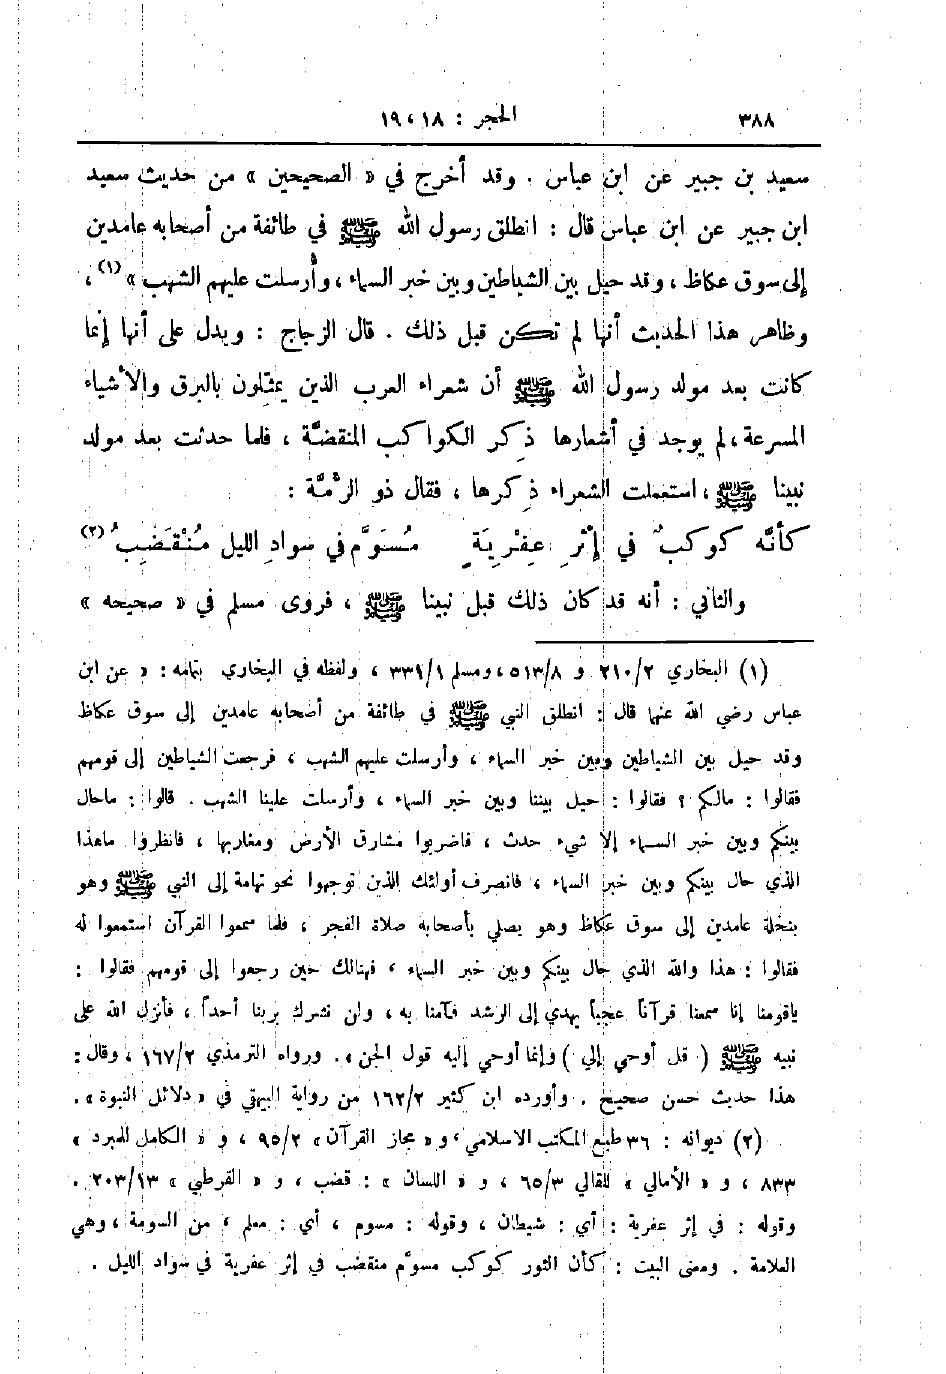 ٣٨٨
الحجر : ١٨ ، ١٩
سعيد بن جبير عن ابن عباس . وقد أخرج في « الصحيحين » من حديث سعيد
ابن جبير عن ابن عباس قال : انطلق رسول الله ﷺ في طائفة من أصحابه عامدين
إلى سوق عكاظ ، وقد حيل بين الشياطين وبين خبر السماء ، وأُرسلت عليهم الشهب » (١) ،
وظاهر هذا الحديث أنها لم تكن قبل ذلك . قال الزجاج : ويدل على أنها إنما
كانت بعد مولد رسول الله ﷺ أن شعراء العرب الذين يمثِّلون بالبرق والأشياء
المسرعة ، لم يوجد في أشعارها ذِكر الكواكب المنقضَّة ، فلما حدثت بعد مولد
نبينا ﷺ ، استعملت الشعراء ذِكرها ، فقال ذو الرُّمَّة :
كأنَّه كوكبٌ في إثْرِ عِفْرِيَةٍ مُسَوَّم في سوادِ الليل مُنْقَضِبُ (٢)
والثاني : أنه قد كان ذلك قبل نبينا ﷺ ، فروى مسلم في « صحيحه »
(١) البخاري ٢١٠/٢ و ٥١٣/٨ ، ومسلم ٣٣١/١ ، ولفظه في البخاري بتمامه : « عن ابن
عباس رضي الله عنهما قال : انطلق النبي ﷺ في طائفة من أصحابه عامدين إلى سوق عكاظ
وقد حيل بين الشياطين وبين خبر السماء ، وأرسلت عليهم الشهب ، فرجعت الشياطين إلى قومهم
فقالوا : مالكم ؟ فقالوا : حيل بيننا وبين خبر السماء ، وأرسلت علينا الشهب . قالوا : ماحال
بينكم وبين خبر السماء إلا شيء حدث ، فاضربوا مشارق الأرض ومغاربها ، فانظروا ماهذا
الذي حال بينكم وبين خبر السماء ، فانصرف أولئك الذين توجهوا نحو تهامة إلى النبي ﷺ وهو
بنخلة عامدين إلى سوق عكاظ وهو يصلي بأصحابه صلاة الفجر ، فلما سمعوا القرآن استمعوا له
فقالوا : هذا والله الذي حال بينكم وبين خبر السماء ، فهنالك حين رجعوا إلى قومهم فقالوا :
ياقومنا إنا سمعنا قرآناً عجباً يهدي إلى الرشد فآمنا به ، ولن نشرك بربنا أحداً ، فأنزل الله على
نبيه ﷺ ( قل أوحي إلي ) وإنما أوحي إليه قول الجن » . ورواه الترمذي ١٦٧/٢ ، وقال :
هذا حديث حسن صحيح . وأورده ابن كثير ١٦٢/٢ من رواية البيهقي في « دلائل النبوة » .
(٢) ديوانه : ٣٦ طبع المكتب الاسلامي ، و « مجاز القرآن » ٩٥/٢ ، و « الكامل للمبرد »
٨٣٣ ، و « الأمالي » للقالي ٦٥/٣ ، و « اللسان » : قضب ، و « القرطبي » ٢٠٣/١٣ .
وقوله : في إثر عفرية : أي : شيطان ، وقوله : مسوم ، أي : معلم ، من السومة ، وهي
العلامة . ومعنى البيت : كأن الثور كوكب مسوَّم منقضب في إثر عفرية في سواد الليل .